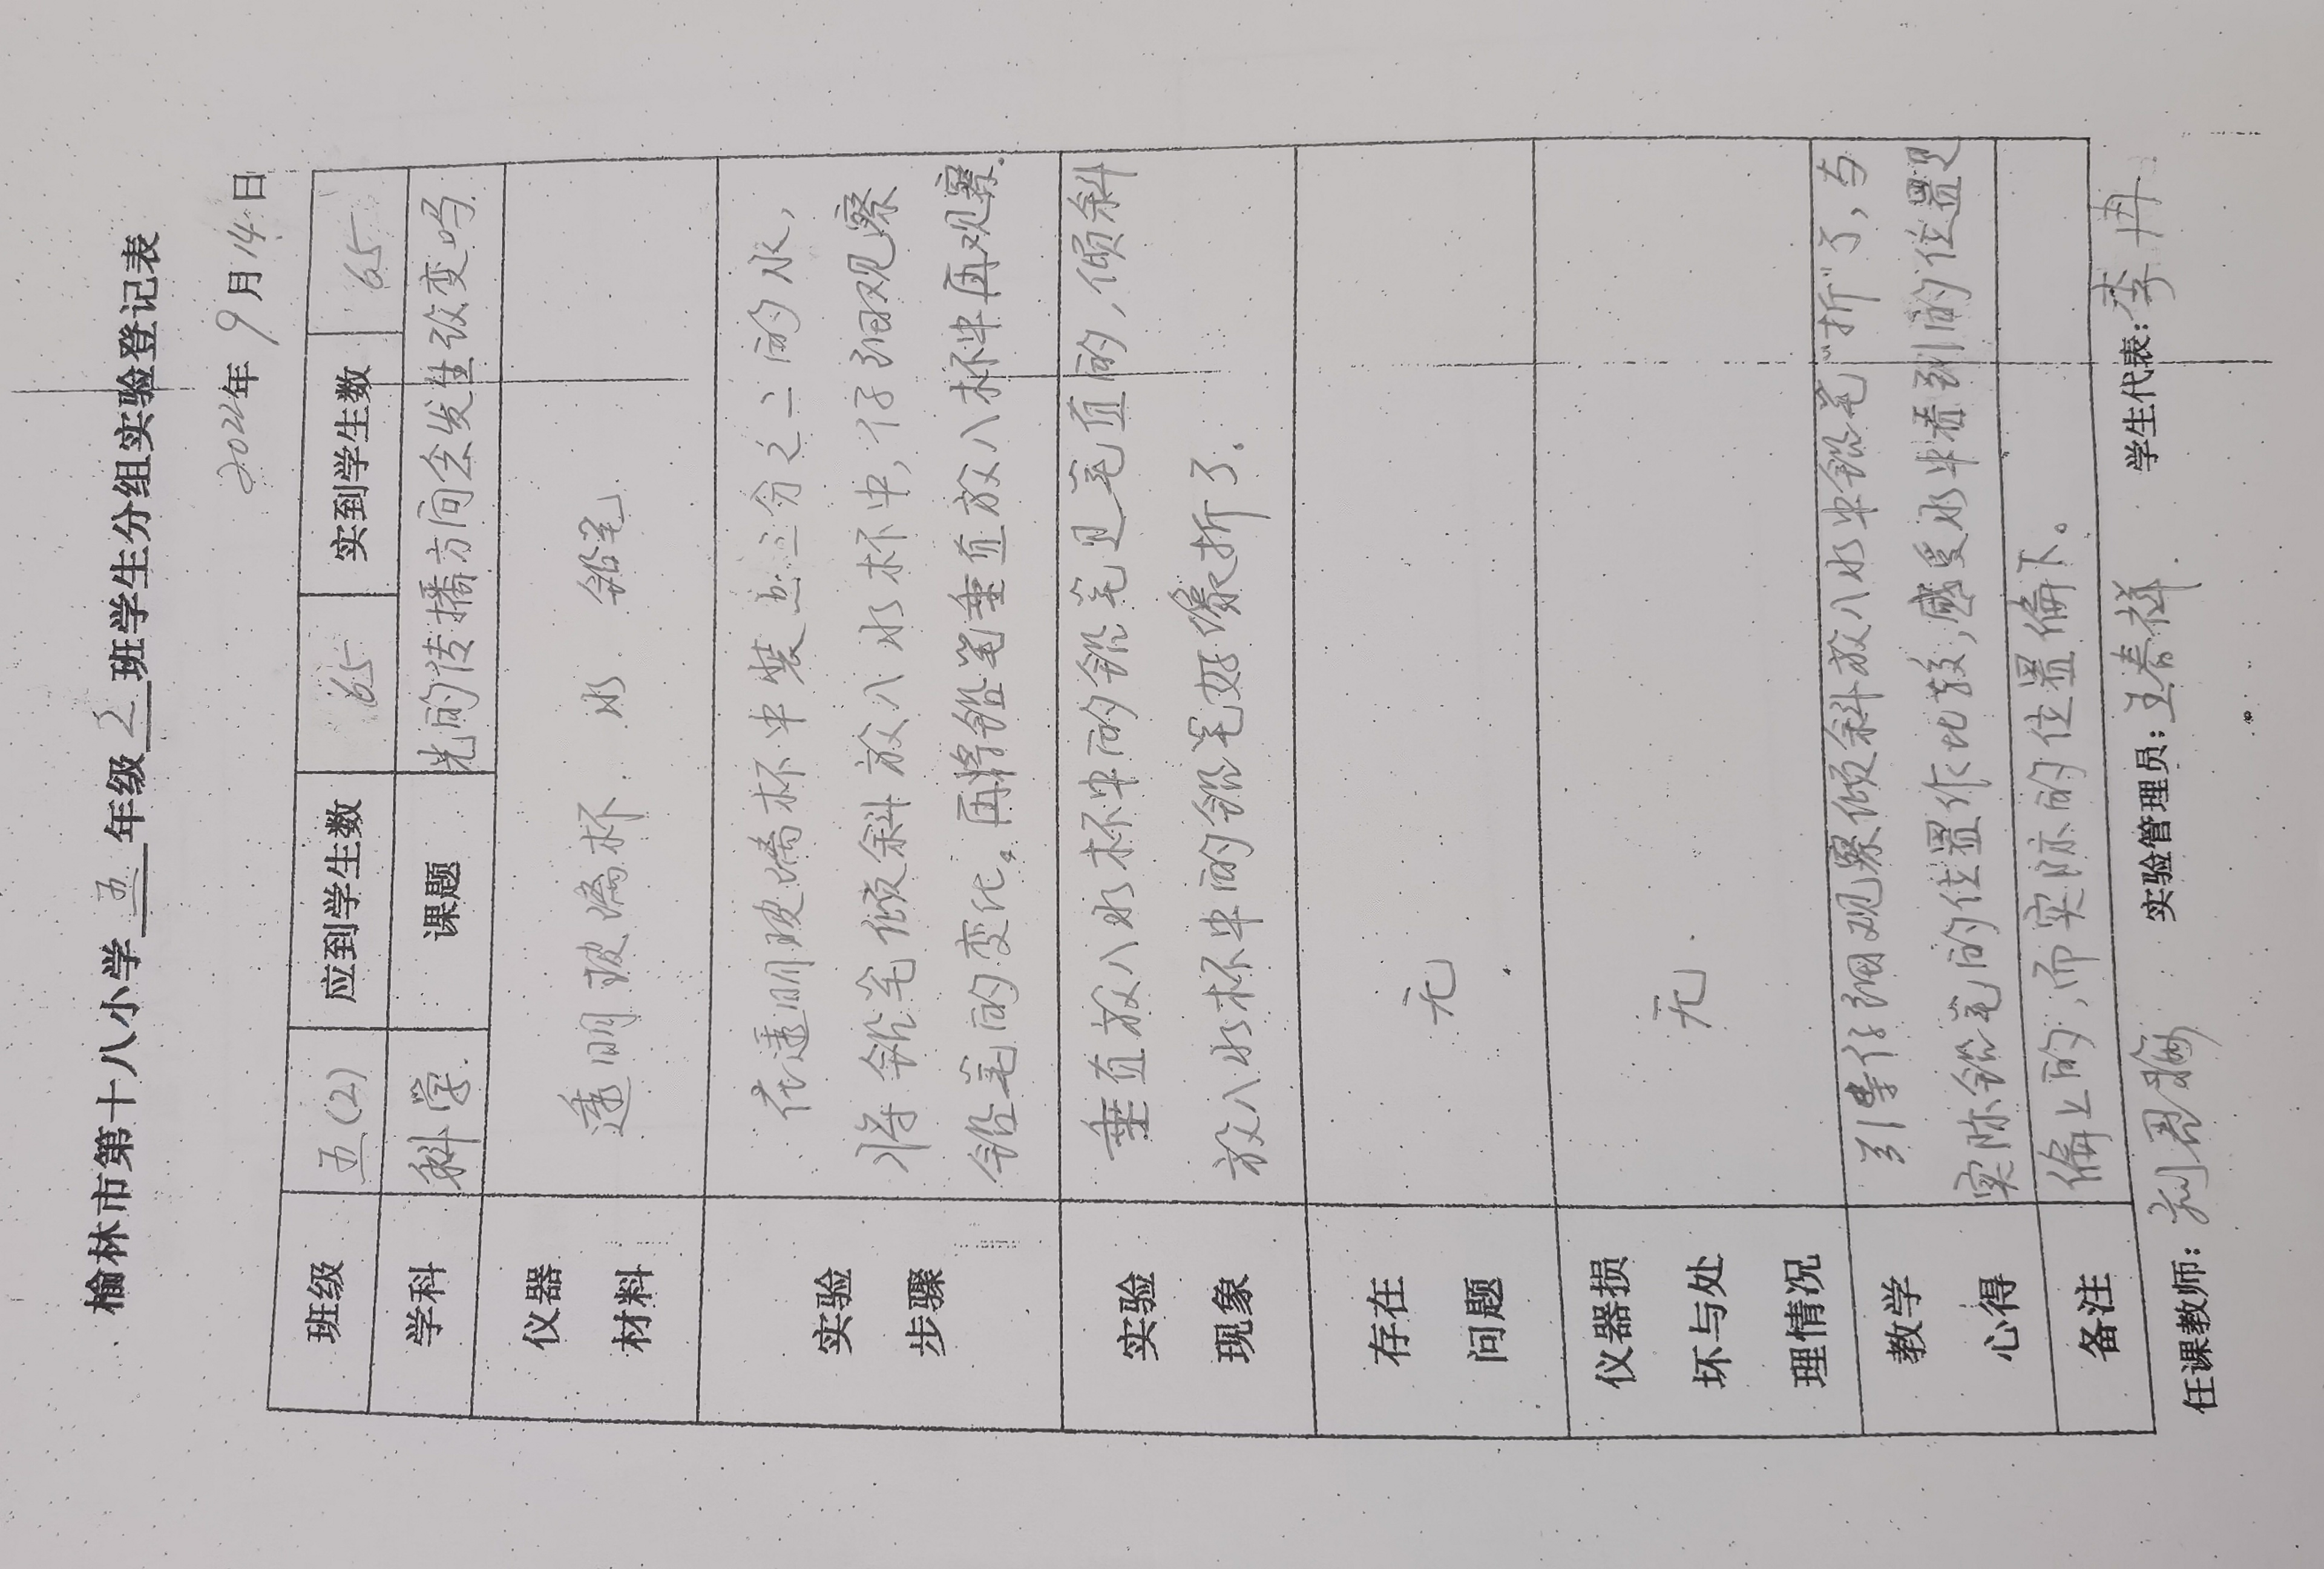 榆林市第十八小学五年级2班学生分组实验登记表
2022年9月14日
班级 五(2) 应到学生数 65 实到学生数 65
学科 科学 课题 光的传播方向会发生改变吗
仪器 材料 透明玻璃杯. 水. 铅笔.
实验 步骤
在透明玻璃杯中装进三分之二的水,
将铅笔倾斜放入水杯中,仔细观察
铅笔的变化。再将铅笔垂直放入杯中再观察.
实验 现象
垂直放入水杯中的铅笔是直的,倾斜
放入水杯中的铅笔好像折了.
存在 问题 无
仪器损 坏与处 理情况 无.
教学 心得
引导仔细观察倾斜放入水中铅笔"折"了,与
实际铅笔的位置作比较,感受水中看到的位置是
备注 偏上的,而实际的位置偏下。
任课教师: 实验管理员:王春祥. 学生代表:李冉